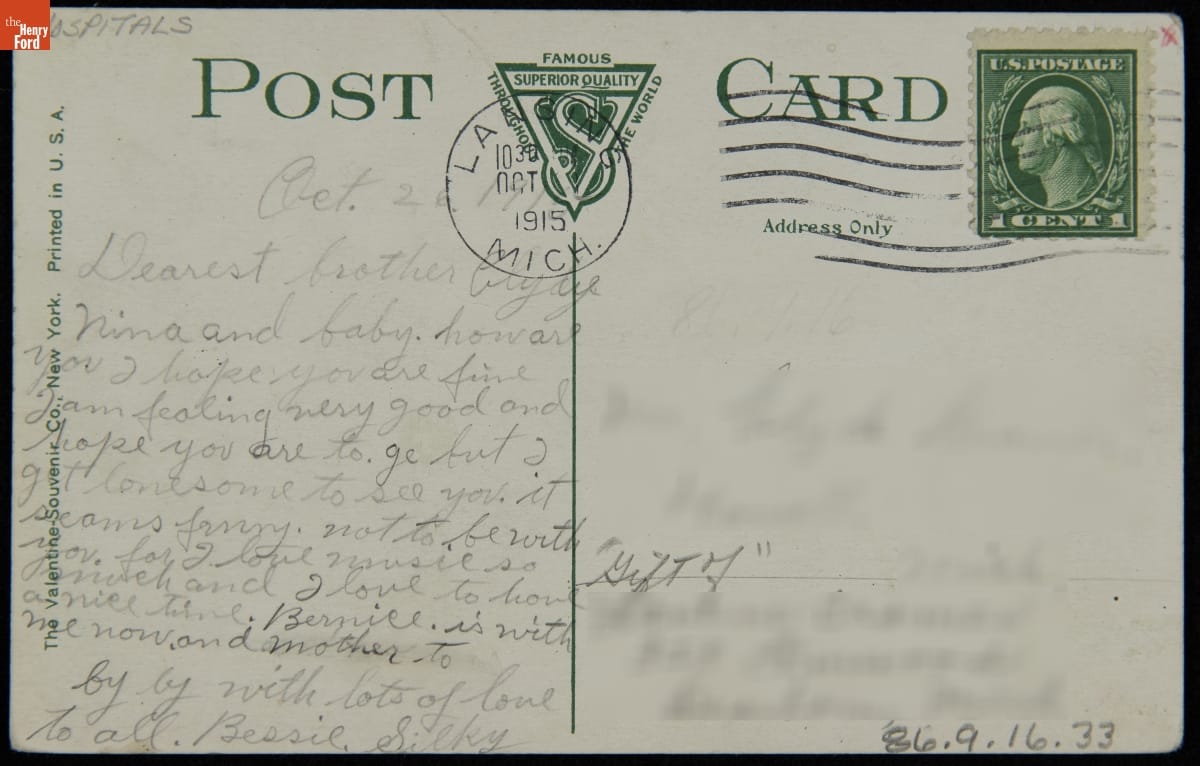 the
Henry
Ford
HOSPITALS
POST CARD
FAMOUS
SUPERIOR QUALITY
THROUGHOUT THE WORLD
LANSING
10 30
OCT
1915
MICH.
U.S. POSTAGE
1 CENT 1
Address Only
The Valentine-Souvenir Co., New York. Printed in U. S. A.
Oct.
Dearest brother Clyde
Nina and baby. how are
you I hope you are fine
I am fealing very good and
hope you are to. ge but I
get lonesome to see you. it
seams funny. not to be with
you. for I love music so
much and I love to have
a nice time. Bernice. is with
me now. and mother to
by by with lots of love
to all. Bessie. Silky
"Gift of"
86.9.16.33